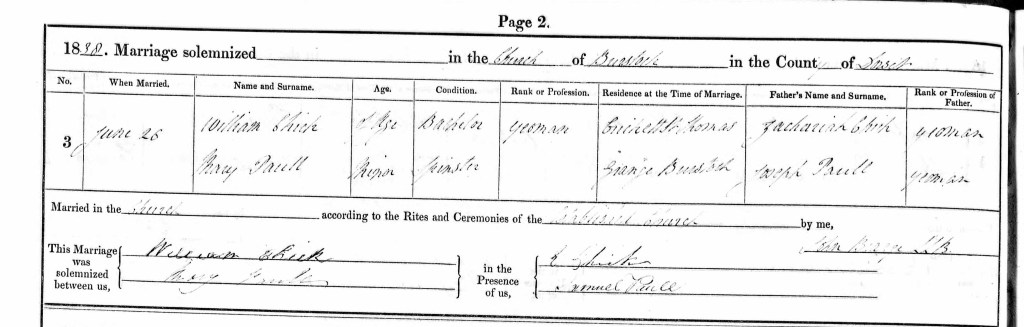 Page 2.
1838. Marriage solemnized in the Church of Burstock in the County of Dorset
No. When Married. Name and Surname. Age. Condition. Rank or Profession. Residence at the Time of Marriage. Father's Name and Surname. Rank or Profession of Father.
3 June 26 William Chick of Age Bachelor Yeoman Thomas Zachariah Chick Yeoman
Mary Paull Minor Spinster Grange Burstock Joseph Paull Yeoman
Married in the Church according to the Rites and Ceremonies of the Established Church by me,
John
This Marriage was solemnized between us, William Chick Mary Paull in the Presence of us, Chick Samuel Paull